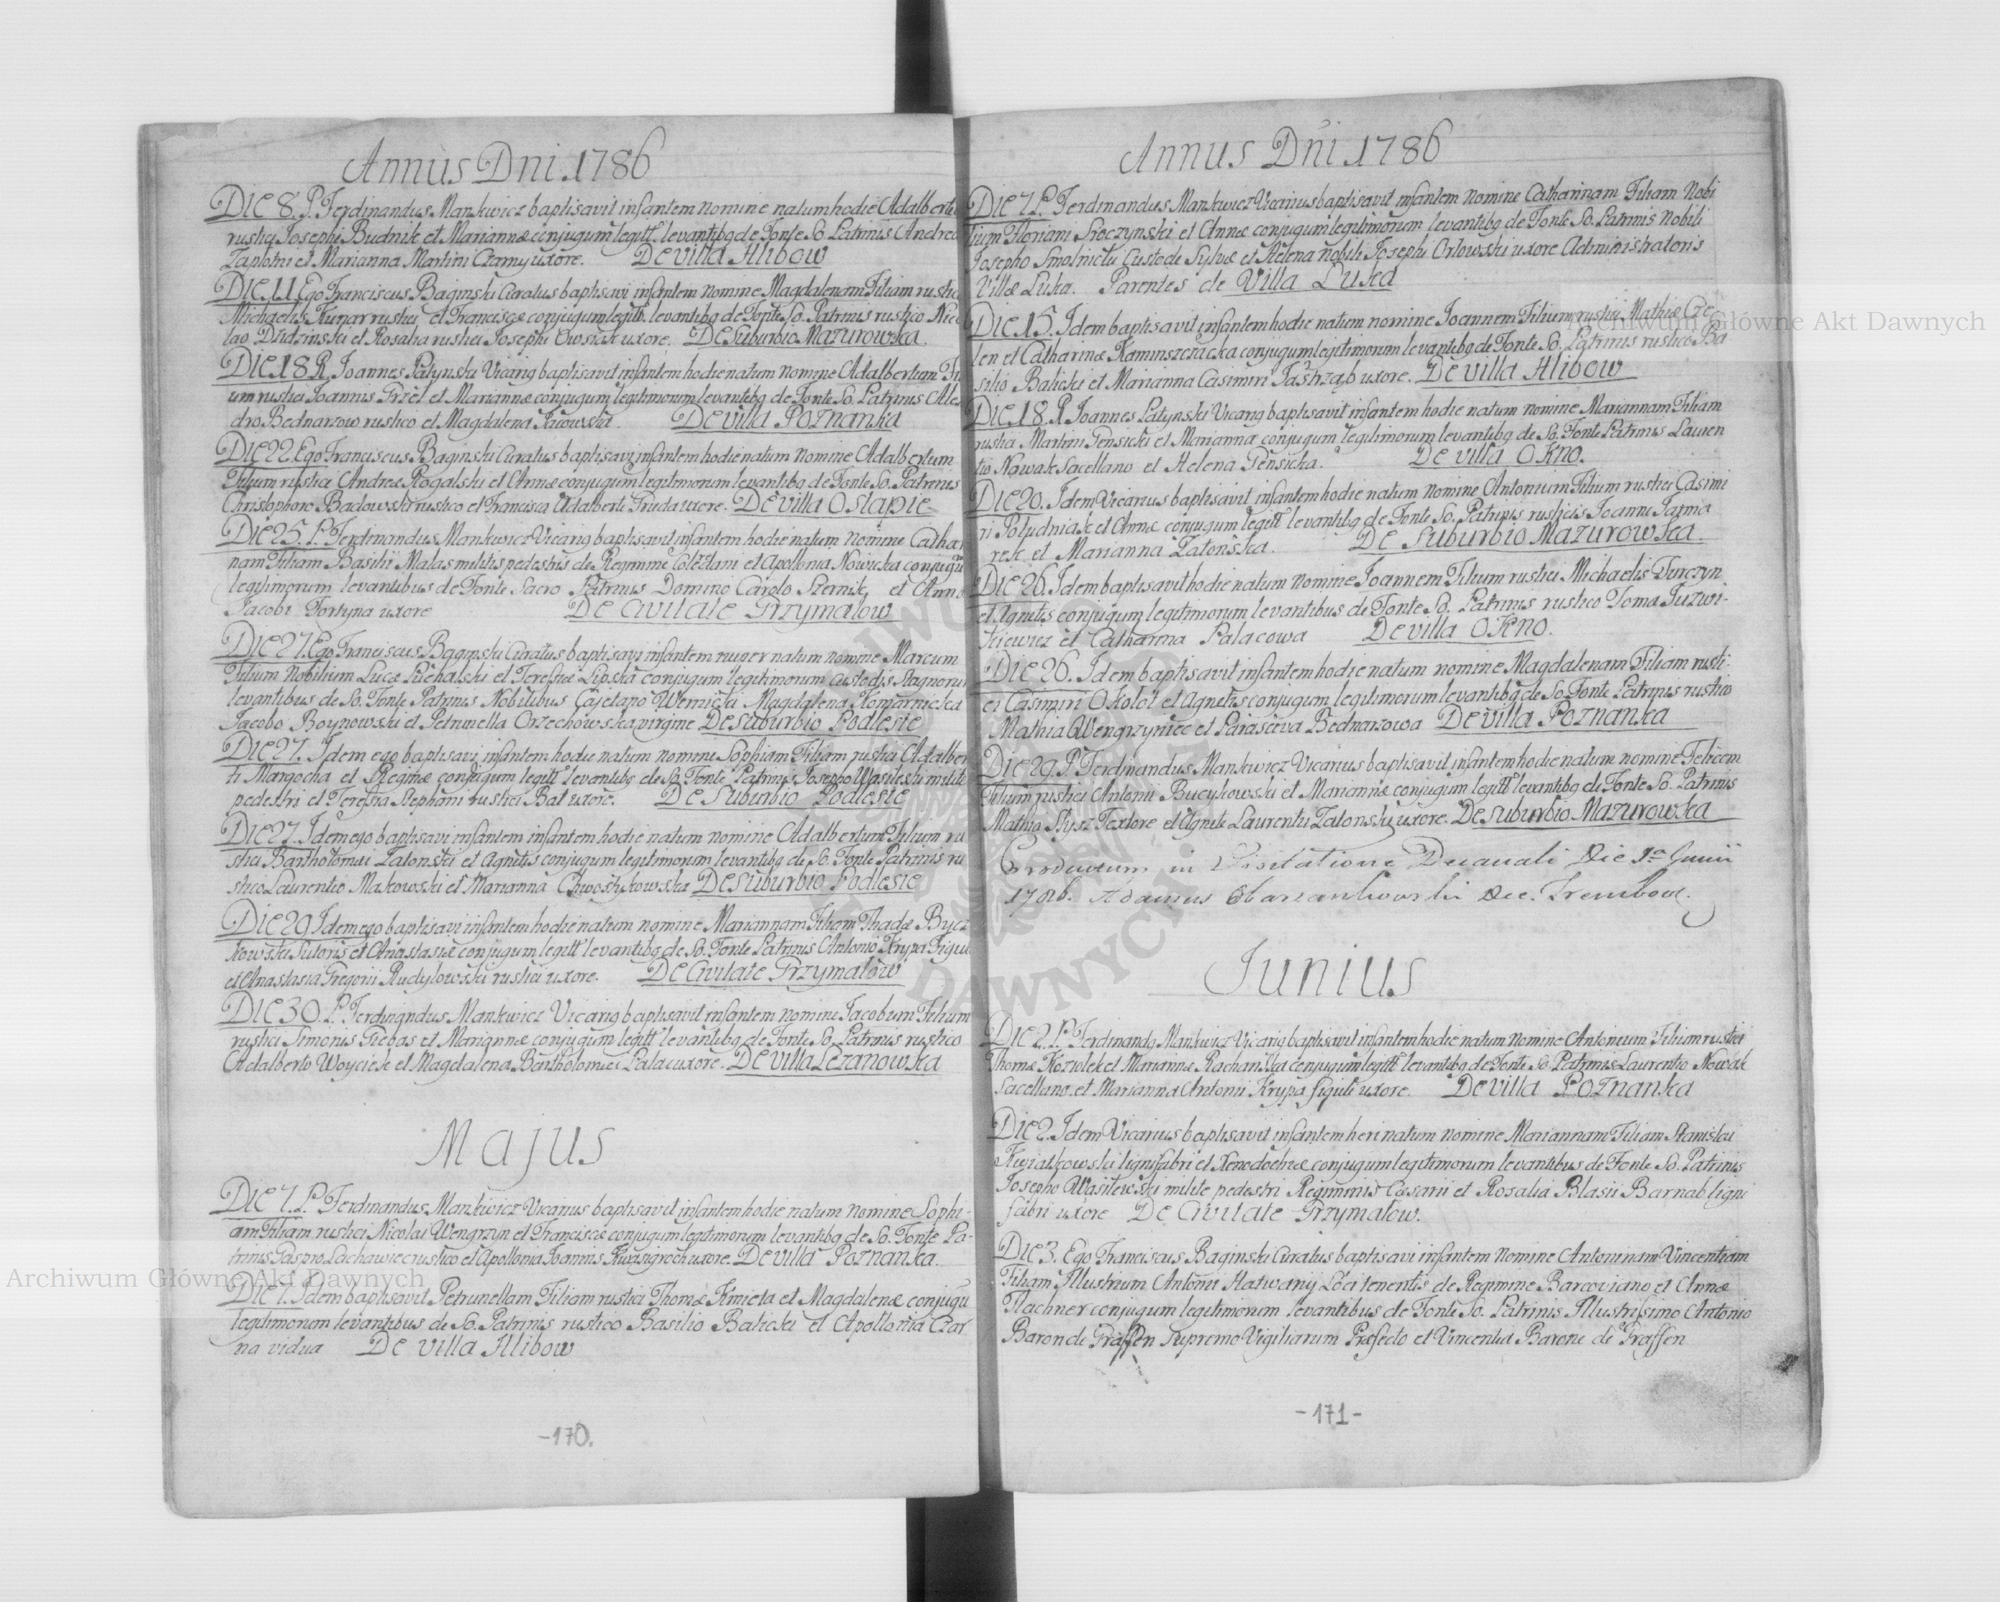 Annus Dni. 1786
Die 8. P. Ferdinandus Mankwicz baptisavit infantem nomine natum hodie Adalbertu
rustici Josephi Budnik et Mariannæ conjugum legitt. levantibq de Fonte So Patrinis Andrea
Zaplotni et Marianna Martini Czarny uxore. De villa Hlibow
Die. 11. Ego Franciscus Baginski Curatus baptisavi infantem nomine Magdalenam Filiam rustic
Michaelis Kunar rustici et Franciscæ conjugum legitt. levantibq de Fonte So. Patrinis rustico Nico
lao Dudzinski et Rosalia rustici Josephi Owsiak uxore. De Suburbio Mazurowka.
Die. 18 R. Joannes Patynski Vicariq baptisavit infantem hodie natum nomine Adalbertum Fi
um rustici Joannis Grzel et Mariannæ conjugum legitimorum levantibq de Fonte So. Patrinis Ale
dro Bednarzow rustico et Magdalena Kacowska. De villa Poznanka
Die 22. Ego Franciscus Baginski Curatus baptisavi infantem hodie natum nomine Adalbertum
Filium rustici Andreæ Rogalski et Annæ conjugum legitimorum levantibq de Fonte So. Patrinis
Christophoro Badowski rustico et Francisca Adalberti Gruda uxore. De villa Ostapie
Die 25. P. Ferdinandus Mankwicz Vicariq baptisavit infantem hodie natum nomine Cathar
nam Filiam Basilii Malas militis pedestris de Regimine Coledani et Apollonia Nowicka conjugu
legitimorum levantibus de Fonte Sacro Patrinis Domino Carolo Szernik, et Anna
Jacobi Fortyna uxore De Civitate Grzymalow
Die 27. Ego Franciscus Baginski Curatus baptisavi infantem nuper natum nomine Marcum
Filium Nobilium Lucæ Puchalski et Teresiæ Lipska conjugum legitimorum custodis Stagnorum
levantibus de So. Fonte Patrinis Nobilibus Cajetano Wernicki Magdalena Komarnicka
Jacobo Boynowski et Petrunella Orzechowska virgine De suburbio Podlesie
Die 27. Idem ego baptisavi infantem hodie natum nomine Sophiam Filiam rustici Adalber
ti Margocha et Reginæ conjugum legitt levantibq de So Fonte Patrinis Josepho Wasileski milite
pedestri et Teresia Stephani rustici Bal uxore. De Suburbio Podlesie
Die 27. Idem ego baptisavi infantem infantem hodie natum nomine Adalbertum Filium ru
stici Bartholomei Zatonski et Agnetis conjugum legitimorum levantibq de So. Fonte Patrinis ru
stico Laurentio Makowski et Marianna Chwostykowska De Suburbio Podlesie
Die 29. Idem ego baptisavi infantem hodie natum nomine Mariannam Filiam Thadæ Bycz
kowski sutoris et Anastasiæ conjugum legitt levantibq de So. Fonte Patrinis Antonio Krypa Figul
et Anastasia Gregorii Rudykowski rustici uxore. De Civitate Grzymalow
Die 30. P. Ferdinandus Mankwicz Vicariq baptisavit infantem nomine Jacobum Filium
rustici Simonis Giebas et Mariannæ conjugum legitt levantibq de Fonte So. Patrinis rustico
Adalberto Woyciek et Magdalena Bertholomei Pala uxore. De villa Lezanowka
Majus
Die 7. P. Ferdinandus Mankwicz Vicarius baptisavit infantem hodie natum nomine Sophi-
am Filiam rustici Nicolai Wengrzyn et Franciscæ conjugum legitimorum levantibq de So. Fonte Pa-
trinis Gaspro Lachawiec rustico et Apollonia Joannis uxore. De villa Poznanka.
Die 7. Idem baptisavit Petrunellam Filiam rustici Thomæ Kmieta et Magdalenæ conjugu
legitimorum levantibus de So. Patrinis rustico Basilio Balicki et Apollonia Czar
na vidua De villa Hlibow
-170.
Annus Dni. 1786
Die 7. P. Ferdinandus Mankwicz Vicarius baptisavit infantem nomine Catharinam Filiam Nobi
lium Floriani Sroczynski et Annæ conjugum legitimorum levantibq de Fonte So. Patrinis Nobili
Josepho Smolnicki Custode Sylvæ et Helena nobili Josephi Orlowski uxore Administratoris
Villæ Luka. Parentes de Villa Luka
Die. 15. Idem baptisavit infantem hodie natum nomine Joannem Filium rustici Mathiæ Cze
len et Catharinæ Kaminszczacka conjugum legitimorum levantibq de Fonte So. Patrinis rustico Ba
silio Balicki et Marianna Casimiri Jastrząb uxore. De villa Hlibow
Die. 18. R. Joannes Patynski Vicariq baptisavit infantem hodie natum nomine Mariannam Filiam
rustici Martini Gensicki et Marianna conjugum legitimorum levantibq de So. Fonte Patrinis Lauren
tio Nowak Sacellano et Helena Gensicka. De villa Okno.
Die 20. Idem Vicarius baptisavit infantem hodie natum nomine Antonium Filium rustici Casimi
ri Poludniak et Annæ conjugum legitt levantibq de Fonte So. Patrinis rusticis Joanni Tatma
rek et Marianna Zatonska. De Suburbio Mazurowka.
Die 26. Idem baptisavit hodie natum nomine Joannem Filium rustici Michaelis Turczyn
et Agnetis conjugum legitimorum levantibus de Fonte So. Patrinis rustico Toma Juzwi-
kiewicz et Catharina Palacowa De villa Okno.
Die 26. Idem baptisavit infantem hodie natum nomine Magdalenam Filiam rusti-
ci Casimiri Okolot et Agnetis conjugum legitimorum levantibq de So. Fonte Patrinis rustico
Mathia Wengrzyniec et Parasceva Bednarzowa De villa Poznanka
Die 29. P. Ferdinandus Mankwicz Vicarius baptisavit infantem hodie natum nomine Felicem
Filium rustici Antonii Bucykowski et Mariannæ conjugum legitt levantibq de Fonte So. Patrinis
Mathia Stysz Textore et Agnete Laurentii Zatonski uxore. De suburbio Mazurowka
Productum in Visitatione Decanali Die 1a Junii
1786. Adamus Dec. Trembow.
Junius
Die 2. P. Ferdinandq Mankwicz Vicariq baptisavit infantem hodie natum nomine Antonium Filium rustici
Thomæ Koziolek et Mariannæ conjugum legitt levantibq de Fonte So. Patrinis Laurentio Nowak
Sacellano et Marianna Antonii Krypa figuli uxore. De villa Poznanka
Die 2. Idem Vicarius baptisavit infantem heri natum nomine Mariannam Filiam Stanislai
Kwiatkowski lignifabri et Xenodochiæ conjugum legitimorum levantibus de Fonte So. Patrinis
Josepho Wasilewski milite pedestri Regiminis Cæsarii et Rosalia Blasii Barnab ligni
fabri uxore De Civitate Grzymalow.
Die 3. Ego Franciscus Baginski Curatus baptisavi infantem nomine Antoninam Vincentiam
Filiam Illustrium Antonii Hatwany Loci tenentis de Regimine Barcoviano et Annæ
Flachner conjugum legitimorum levantibus de Fonte So. Patrinis Illustrissimo Antonio
Baron de Graffen Supremo Vigiliarum Præfecto et Vincentia Barone de Graffen
-171-
Archiwum Główne Akt Dawnych
Archiwum Główne Akt Dawnych